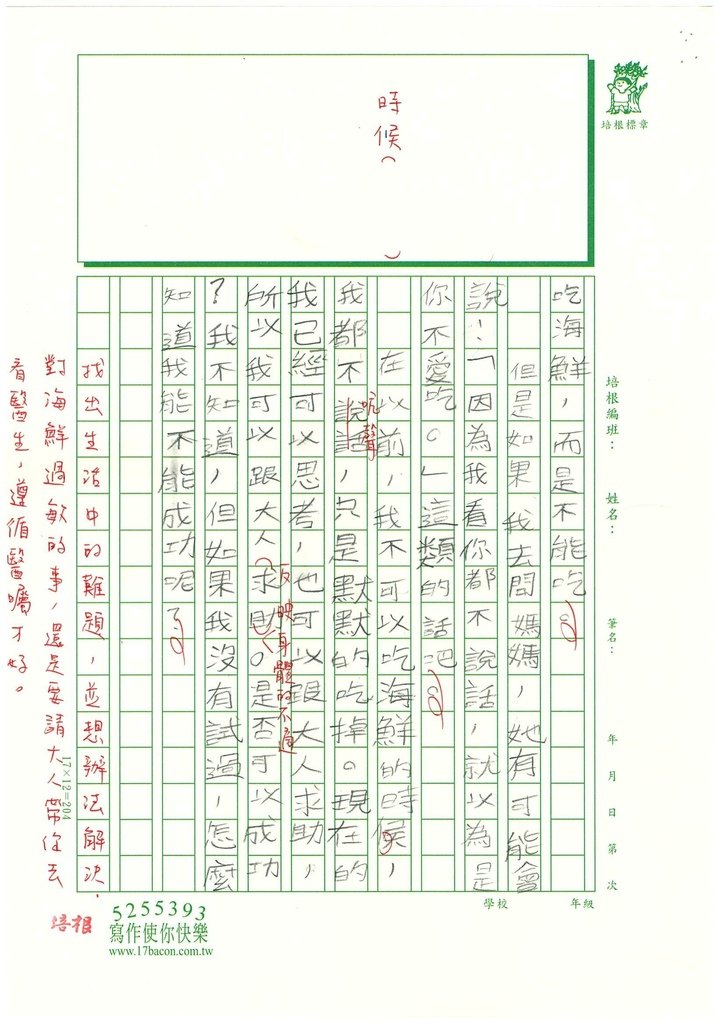 時候
培根標章
培根編班： 姓名： 筆名： 年 月 日 第 次
學校 年級
吃海鮮，而是不能吃
但是如果我去問媽媽，她有可能會
說：「因為我看你都不說話，就以為是
你不愛吃。」這類的話吧
在以前，我不可以吃海鮮的時侯，
我都不說話，只是默默的吃掉。現在的
吭聲
我已經可以思考，也可以跟大人求助，
所以我可以跟大人求助。是否可以成功
反映身體的不適
？我不知道，但如果我沒有試過，怎麼
知道我能不能成功呢？
找出生活中的難題，並想辦法解決，
對海鮮過敏的事，還是要請大人帶你去
看醫生，遵循醫囑才好。
17×12=204
培根
5255393
寫作使你快樂
www.17bacon.com.tw